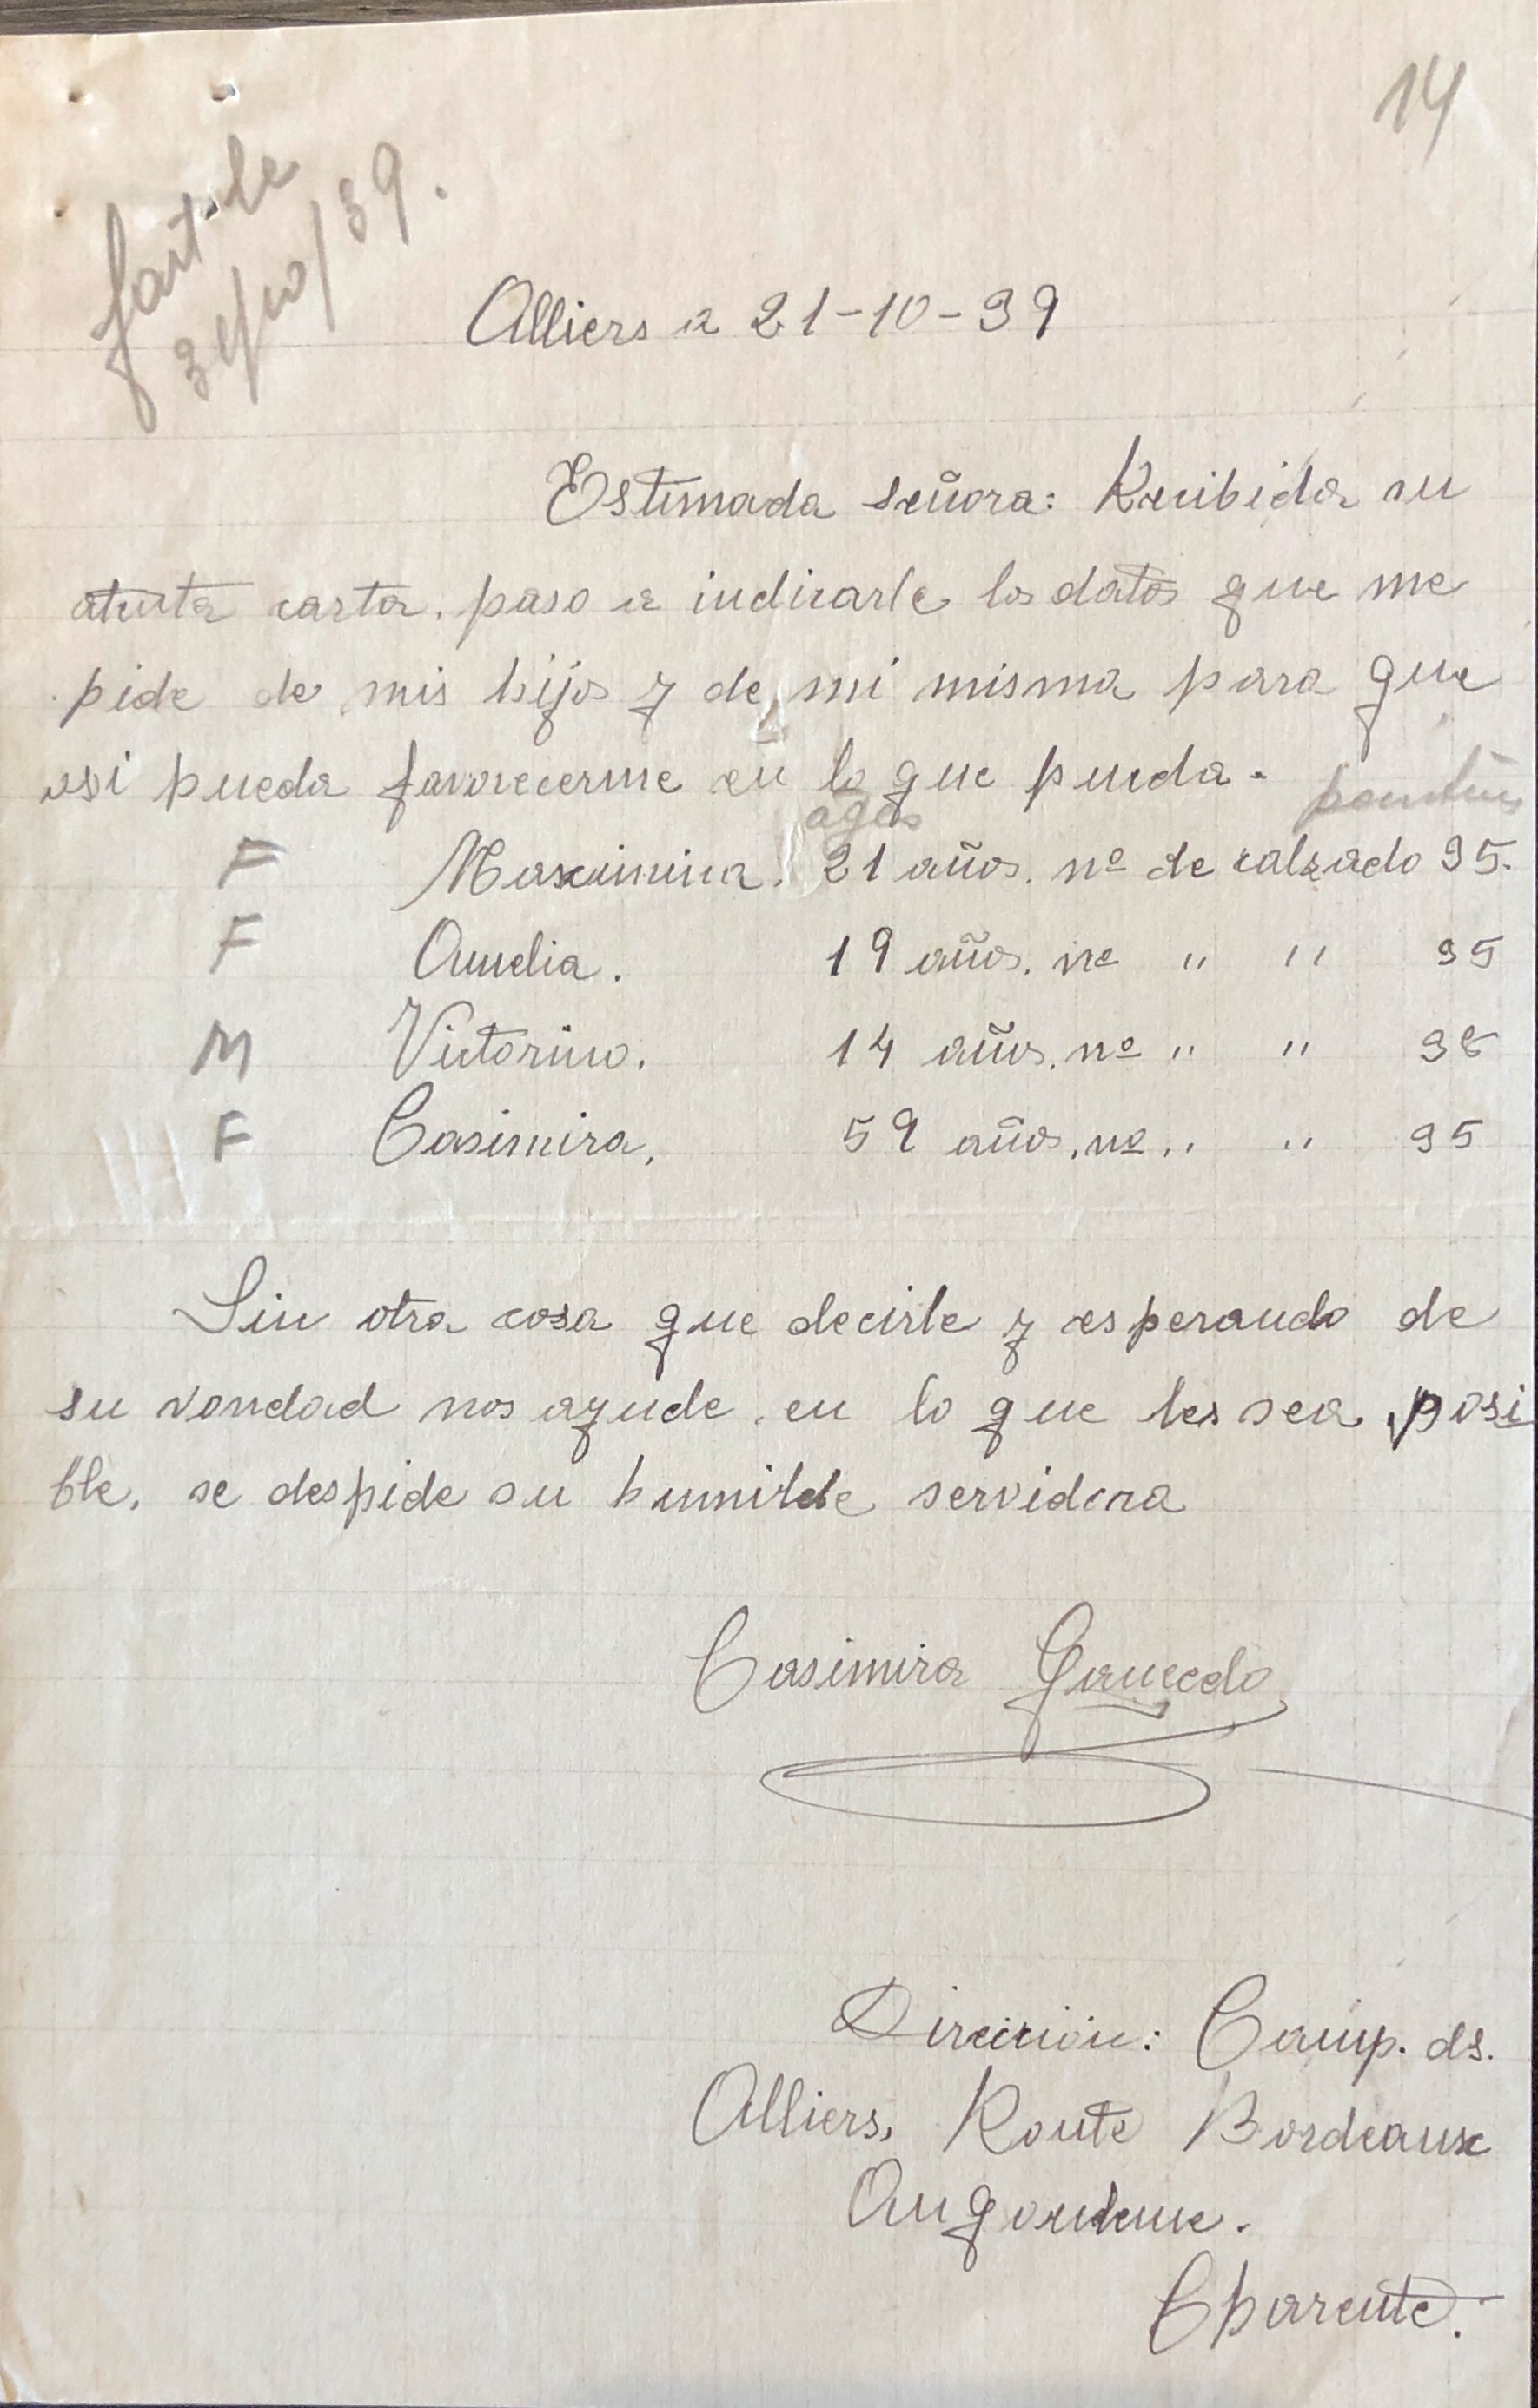 14
fait le
31/10/39.
Alliers a 21-10-39
Estimada señora: Recibida su
atenta carta. paso a indicarle los datos que me
pide de mis hijos y de mi misma para que
asi pueda favorecerme en lo que pueda.
ages pointures
F Maximina. 21 años. nº de calzado 35.
F Amelia. 19 años. nº " " 35
M Victorino. 14 años. nº " " 38
F Casimira, 59 años, nº " " 35
Sin otra cosa que decirle y esperando de
su vondad nos ayude en lo que les sea posi
ble, se despide su humilde servidora
Casimira Gancedo
Direccion: Camp. ds.
Alliers, Route Bordeaux
Angouleme.
Charente.